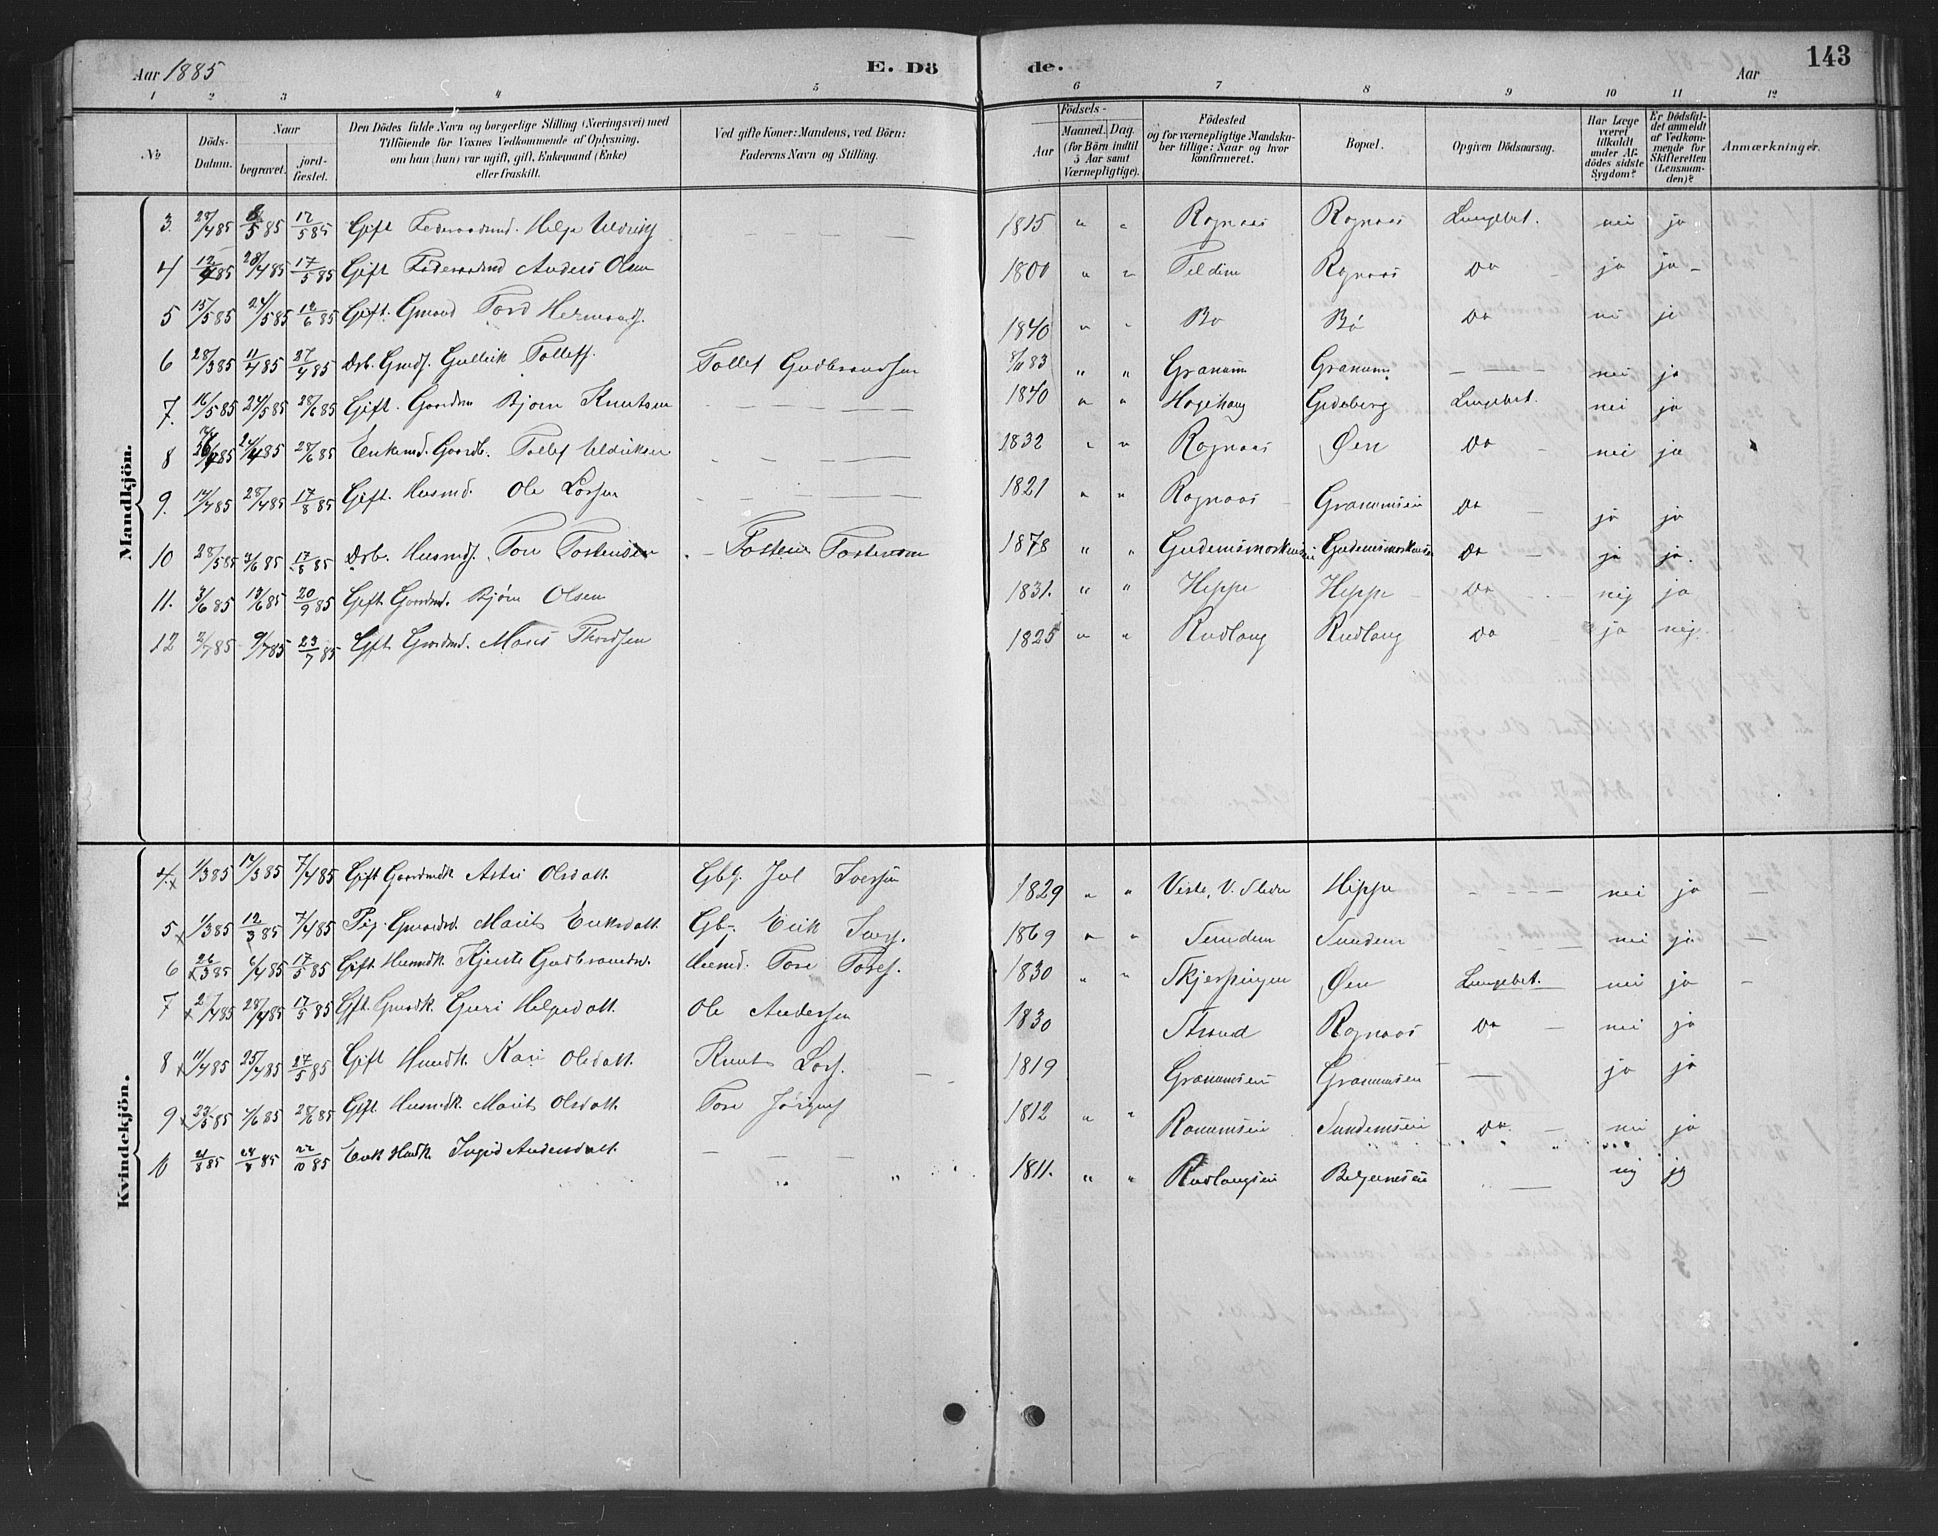 Aar 1885 E. Dö de. Aar 143
1 2 3 4 5 6 7 8 9 10 11 12
No
Döds-Datum.
Naar begravet. jordfæstet.
Den Dödes fulde Navn og borgerlige Stilling (Næringsvei) med Tilföiende for Voxnes Vedkommende af Oplysning, om han (hun) var ugift, gift, Enkemand (Enke) eller fraskilt.
Ved gifte Koner: Mandens, ved Börn: Faderens Navn og Stilling.
Födsels- Aar Maaned. Dag. (for Börn indtil 5 Aar samt Værnepligtige).
Födested og for værnepligtige Mandskaber tillige: Naar og hvor konfirmeret.
Bopæl.
Opgiven Dödsaarsag.
Har Læge været tilkaldt under Afdödes sidste Sygdom?
Er Dödsfaldet anmeldt af Vedkommende for Skifteretten (Lensmanden)?
Anmærkninger.
Mandkjön.
3. 28/4 85 8/5 85 17/5 85 Gift Helge 1815 " " Rognaas Rognaas Lungebet. nei ja
4 12/4 85 28/4 85 17/5 85 Gift Anders Olsen 1800 " " Feldim Rognaas Do ja ja
5 15/5 85 24/5 85 12/6 85 Gift. Gmand Tord 1840 " " Bø Bø Do nei ja
6 28/3 85 11/4 85 27/4 85 Drb. Gmds. Gullik Tollefs. Tollef Gudbrandsen 8/11 83 " " Granum Granum — nei ja
7. 16/5 85 24/5 85 28/6 85 Gift. Gaardm Bjørn Knutsen — — — 1840 " " Hagehaug Gudeberg Lungebet. nei ja
8 24/4 85 28/6 85 Enkemd. Gaardb. Tollef Ulriksen — — — 1832 " " Rognaas Øen Do nei ja
9. 17/4 85 28/4 85 17/8 85 Gift. Husmd. Ole Larsen — — — 1821 " " Rognaas Granumseie Do ja ja
10 28/5 85 3/6 85 17/8 85 Drb. Husmds. Tore Tostensen Tosten Tostensen 1878 " " Do ja ja.
11. 3/6 85 13/6 85 20/9 85 Gift Gaardmd. Bjørn Olsen 1831. " " Hippe Hippe Do nej ja
12 2/7 85 9/7 85 23/7 85 Gift Gaardmd. Thordsen 1825 " " Rudlang Rudlang Do ja nej.
Kvindekjön.
4. 1/3 85 17/3 85 7/4 85 Gift Gaardmdk Astri Olsdatt. Gbg. Jul Iversen 1829 " " Veste, V. Slidre Hippe — nei ja —
5 1/3 85 12/3 85 7/4 85 Pig. Marit Eriksdatt. Gb. Erik Ivers. 1869 " " Sundem Sundem nei ja —
6 26/3 85 6/4 85 17/5 85 Gift Husmdk Kjersti Gudbrandsd. Husmd. Tore Tores. 1830 " " Skjerpingen Øen Lungebet. nei ja —
7 28/4 85 17/5 85 Gift. Gmdk Guri Helgesdatt. Ole Andersen 1830 Strand Rognaas Do — nei ja
8 11/4 85 25/4 85 27/5 85 Gift Husmdk Kari Olsdatt. Knut Lars. 1819 Granumseie Granumseie — ja ja
9 23/5 85 7/6 85 28/6 85 Gift Husmdk Marit Olsdatt. Tore 1812 " " Ranumseie Sundemseie Do — nei ja
10 21/8 85 29/8 85 22/10 85 Enk Husmdk Ingrid Andersdatt. — — — 1811. " " Rudlangseie — nej ja